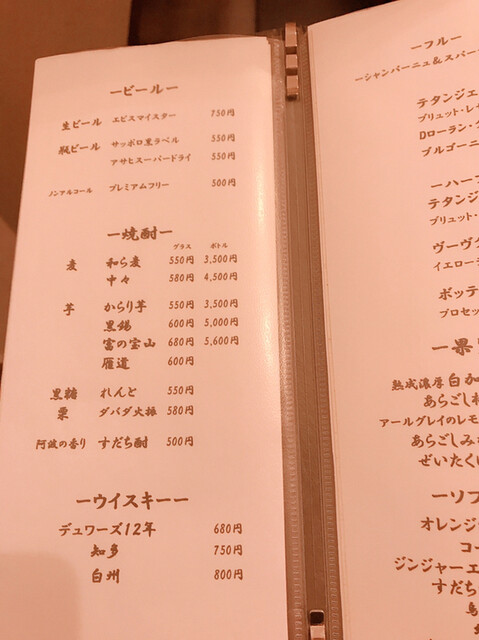 ービールー
生ビール エビスマイスター 750円
瓶ビール サッポロ黒ラベル 550円
アサヒスーパードライ 550円
ノンアルコール プレミアムフリー 500円
ー焼酎ー
グラス ボトル
麦 和ら麦 550円 3,500円
中々 580円 4,500円
芋 からり芋 550円 3,500円
黒錫 600円 5,000円
富の宝山 680円 5,600円
雁道 600円
黒糖 れんと 550円
栗 ダバダ火振 580円
阿波の香り すだち酎 500円
ーウイスキーー
デュワーズ12年 680円
知多 750円
白州 800円
ーフルー
ーシャンパーニュ&スパー
テタンジェ
ブリュット・レ
Dローラン・
ブルゴーニ
ーハーフ
テタンジ
ブリュット・
ヴーヴ
イエロー
ボッテ
プロセッ
ー果
熟成濃厚 白加
あらごし
アールグレイのレモ
あらごしみ
ぜいたく
ーソフ
オレンジ
コー
ジンジャーエ
すだち